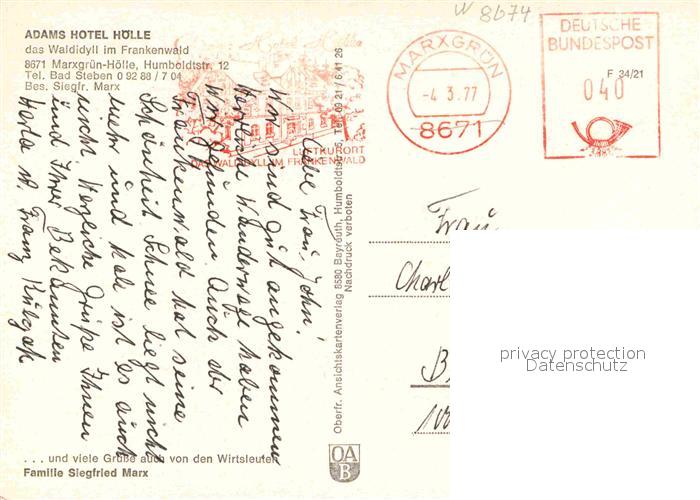 W 8674
ADAMS HOTEL HÖLLE
das Waldidyll im Frankenwald
8671 Marxgrün-Hölle, Humboldtstr. 12
Tel. Bad Steben 0 92 88 / 7 04
Bes. Siegfr. Marx
LUFTKURORT
DAS WALDIDYLL IM FRANKENWALD
MARXGRÜN
-4.3.77
8671
DEUTSCHE
BUNDESPOST
F 34/21
040
Liebe Frau John!
Wir sind gut angekommen
Herrliche Wanderwege haben
wir gefunden. Auch der
Frankenwald hat seine
Schönheit Schnee liegt nicht
mehr und kalt ist es auch
nicht. Herzliche Grüße Ihnen
und Ihren Bekannten
Herta u. Franz
Oberfr. Ansichtskartenverlag 8580 Bayreuth, Humboldtstr. 26, Tel. 09 21 / 6 41 26
Nachdruck verboten
Frau
Charl
B
OA
B
privacy protection
Datenschutz
. . . und viele Grüße auch von den Wirtsleuten
Familie Siegfried Marx